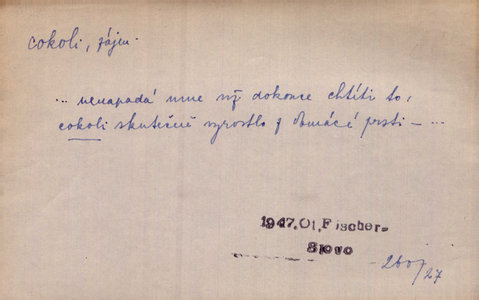 cokoli, zájm.
... nenapadá mne už dokonce chtíti to,
cokoli skutečně vyrostlo z domácí prsti – ...
1947.Ot.Fischer-
Slovo
260/27